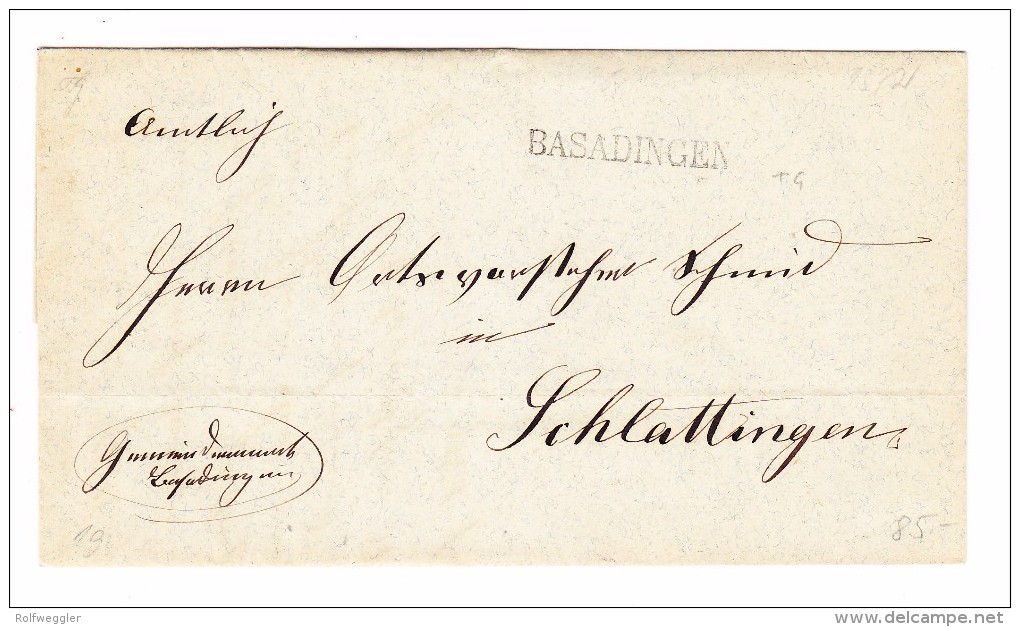 Amtlich
BASADINGEN
TG
Herrn Ortsvorsteher Schmid
in
Schlattingen
Gemeindeammann
Basadingen
19
85-
Rolfweggler
www.delcampe.net